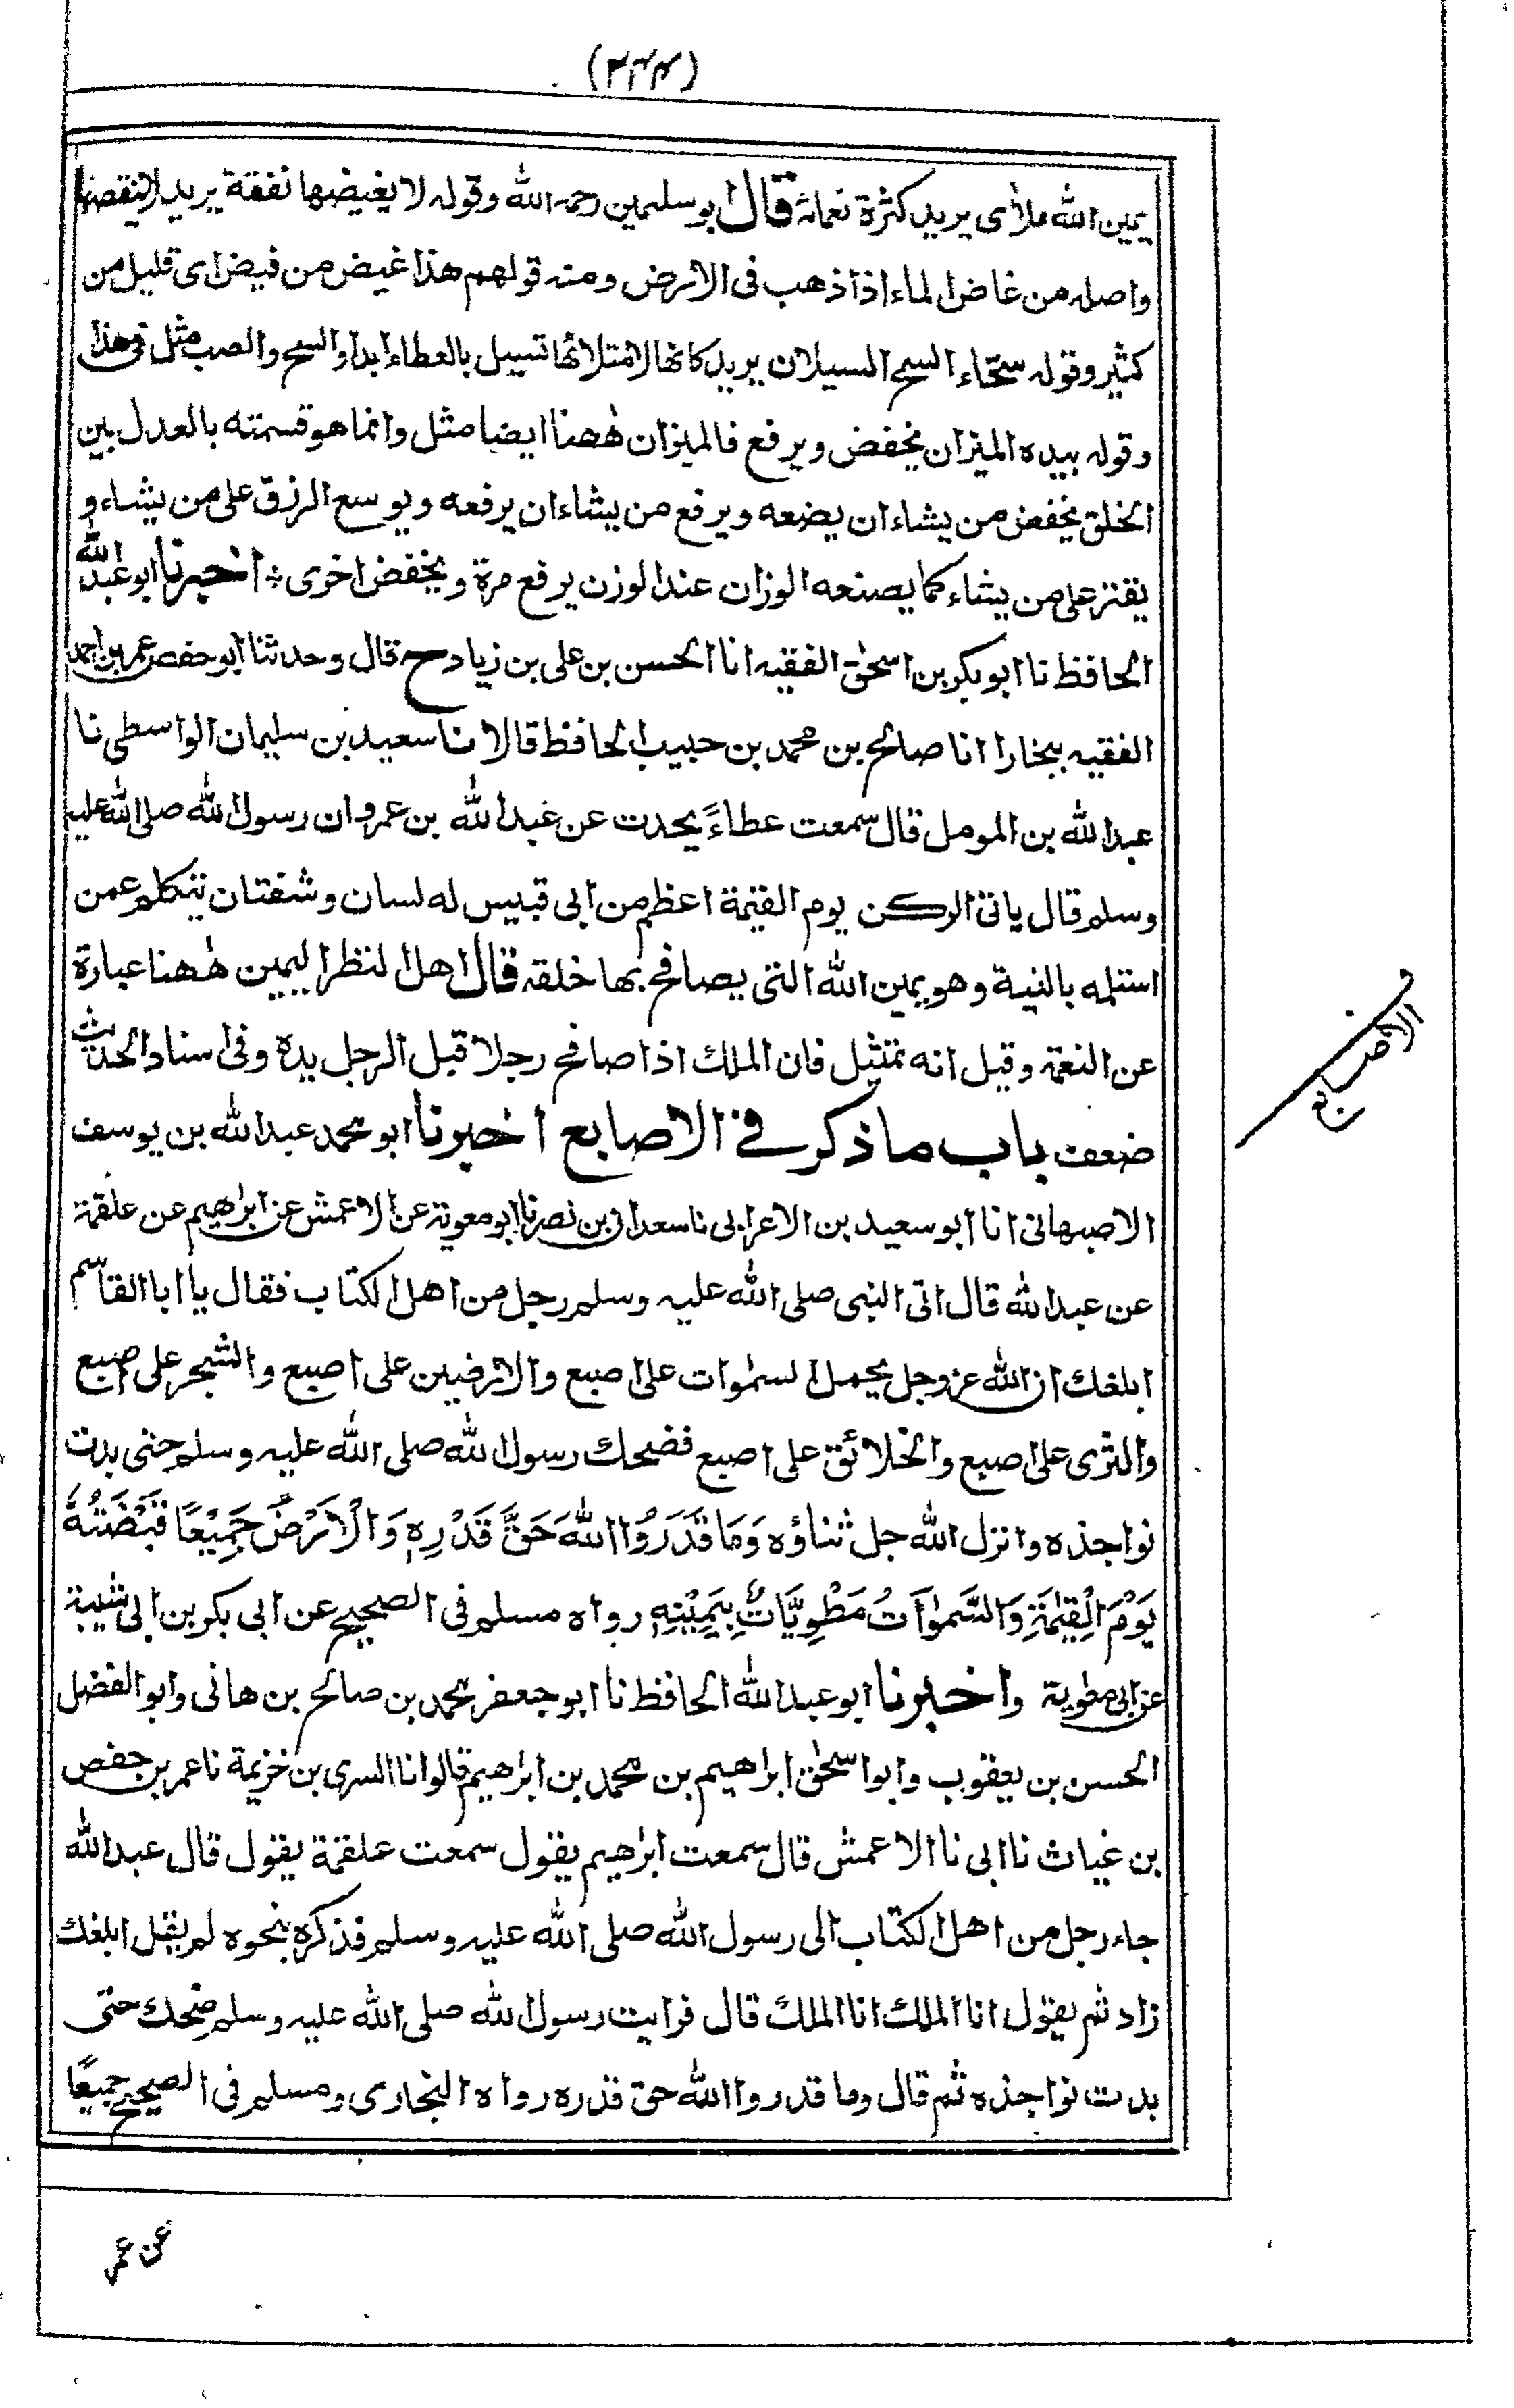 (۲۴۴)
يمين الله ملأى يريد كثرة نعمائه قال ابو سليمين رحمه الله وقوله لا يغيضها نفقة يريد لاينقصها
واصله من غاض الماء اذا ذهب فى الارض ومنه قولهم هذا غيض من فيض اى قليل من
كثير وقوله سحّاء السح السيلان يريد كانها لامتلائها تسيل بالعطاء ابدا والسح والصب مثل فى هذا
وقوله بيده الميزان يخفض ويرفع فالميزان ههنا ايضا مثل وانما هو قسمته بالعدل بين
الخلق يخفض من يشاء ان يضعه ويرفع من يشاء ان يرفعه ويوسع الرزق على من يشاء و
يقتر على من يشاء كما يصنعه الوزان عند الوزن يرفع مرة ويخفض اخرى ؞ اخبرنا ابو عبد الله
الحافظ نا ابو بكر بن اسحٰق الفقيه انا الحسن بن على بن زياد ح قال وحدثنا ابو حفص عمر بن احمد
الفقيه ببخارا انا صالح بن محمد بن حبيب الحافظ قالا نا سعيد بن سليمان الواسطى نا
عبد الله بن المومل قال سمعت عطاءً يحدث عن عبد الله بن عمرو ان رسول الله صلى الله عليه
وسلم قال ياتى الركن يوم القيٰمة اعظم من ابى قبيس له لسان وشفتان يتكلم عمن
استلمه بالنية وهو يمين الله التى يصافح بها خلقه قال اهل النظر اليمين ههنا عبارة
عن النعمة وقيل انه تمثيل فان الملك اذا صافح رجلا قبل الرجل يده وفى اسناد الحديث
ضعف باب ما ذكر فى الاصابع اخبرنا ابو محمد عبد الله بن يوسف
الاصبهانى انا ابو سعيد بن الاعرابى نا سعدان بن نصر نا ابو معوية عن الاعمش عن ابراهيم عن علقمة
عن عبد الله قال اتى النبى صلى الله عليه وسلم رجل من اهل الكتاب فقال يا ابا القاسم
ابلغك ان الله عز وجل يحمل السمٰوات على اصبع والارضين على اصبع والشجر على اصبع
والثرى على اصبع والخلائق على اصبع فضحك رسول الله صلى الله عليه وسلم حتى بدت
نواجذه وانزل الله جل ثناؤه وَمَا قَدَرُوا اللهَ حَقَّ قَدْرِهٖ وَالْاَرْضُ جَمِيْعًا قَبْضَتُهٗ
يَوْمَ الْقِيٰمَةِ وَالسَّمٰوَاتُ مَطْوِيَّاتٌ بِيَمِيْنِهٖ رواه مسلم فى الصحيح عن ابى بكر بن ابى شيبة
عن ابى معوية واخبرنا ابو عبد الله الحافظ نا ابو جعفر محمد بن صالح بن هانى وابو الفضل
الحسن بن يعقوب وابو اسحٰق ابراهيم بن محمد بن ابراهيم قالوا نا السرى بن خزيمة نا عمر بن حفص
بن غياث نا ابى نا الاعمش قال سمعت ابرٰهيم يقول سمعت علقمة يقول قال عبد الله
جاء رجل من اهل الكتاب الى رسول الله صلى الله عليه وسلم فذكره بنحوه لم يقل ابلغك
زاد ثم يقول انا الملك انا الملك قال فرايت رسول الله صلى الله عليه وسلم ضحك حتى
بدت نواجذه ثم قال وما قدروا الله حق قدره رواه البخارى ومسلم فى الصحيح جميعًا
عن عمر
الاصابع